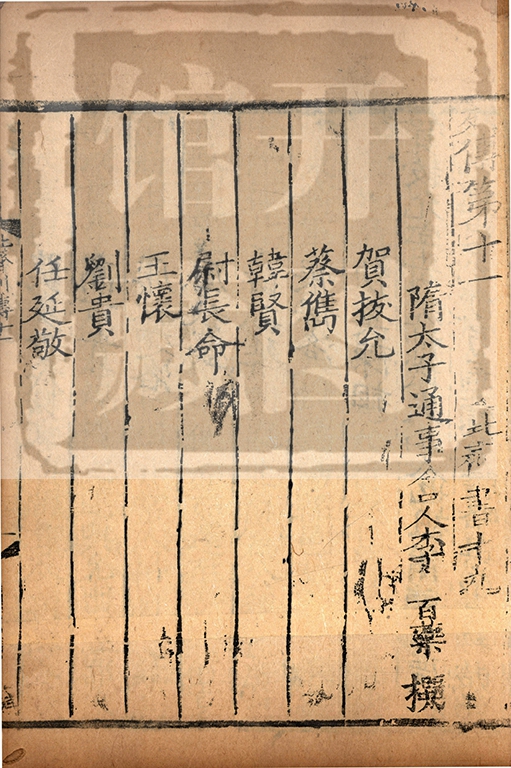 列傳第十一 北齊書十九
隋太子通事舍人李百藥 撰
賀拔允
蔡儁
韓賢
尉長命
王懷
劉貴
任延敬